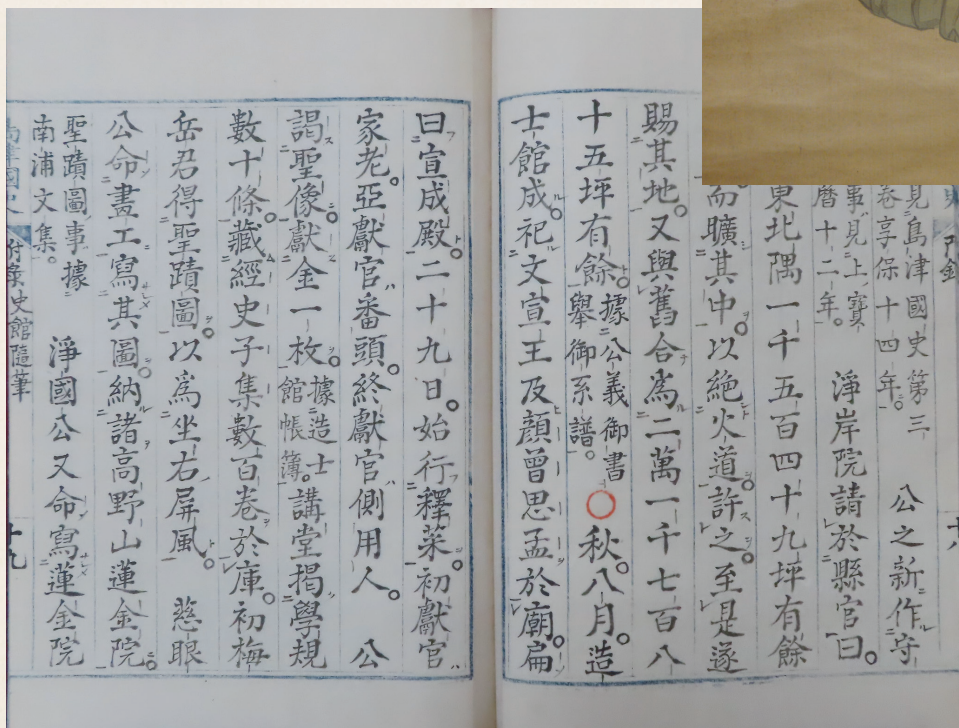 見島津國史第三
卷享保十四年。
公之新作守
事見上寶
曆十二年。
淨岸院請於縣官曰。
東北隅一千五百四十九坪有餘
而曠其中。以絶火道。許之。至是遂
賜其地。又與舊合爲二萬一千七百八
十五坪有餘。據公義御書
擧御系譜。
○秋。八月。造
士館成。祀文宣王及顏曾思孟於廟。扁
曰宣成殿。二十九日。始行釋菜。初獻官
家老。亞獻官番頭。終獻官側用人。 公
謁聖像。獻金一枚。據造士
館帳簿。
講堂揭學規
數十條。藏經史子集數百卷於庫。初梅
岳君得聖蹟圖。以爲坐右屏風。 慈眼
公命畫工寫其圖。納諸高野山蓮金院。
聖蹟圖事據
南浦文集。
淨國公又命寫蓮金院
島津國史 附錄史館隨筆 十九